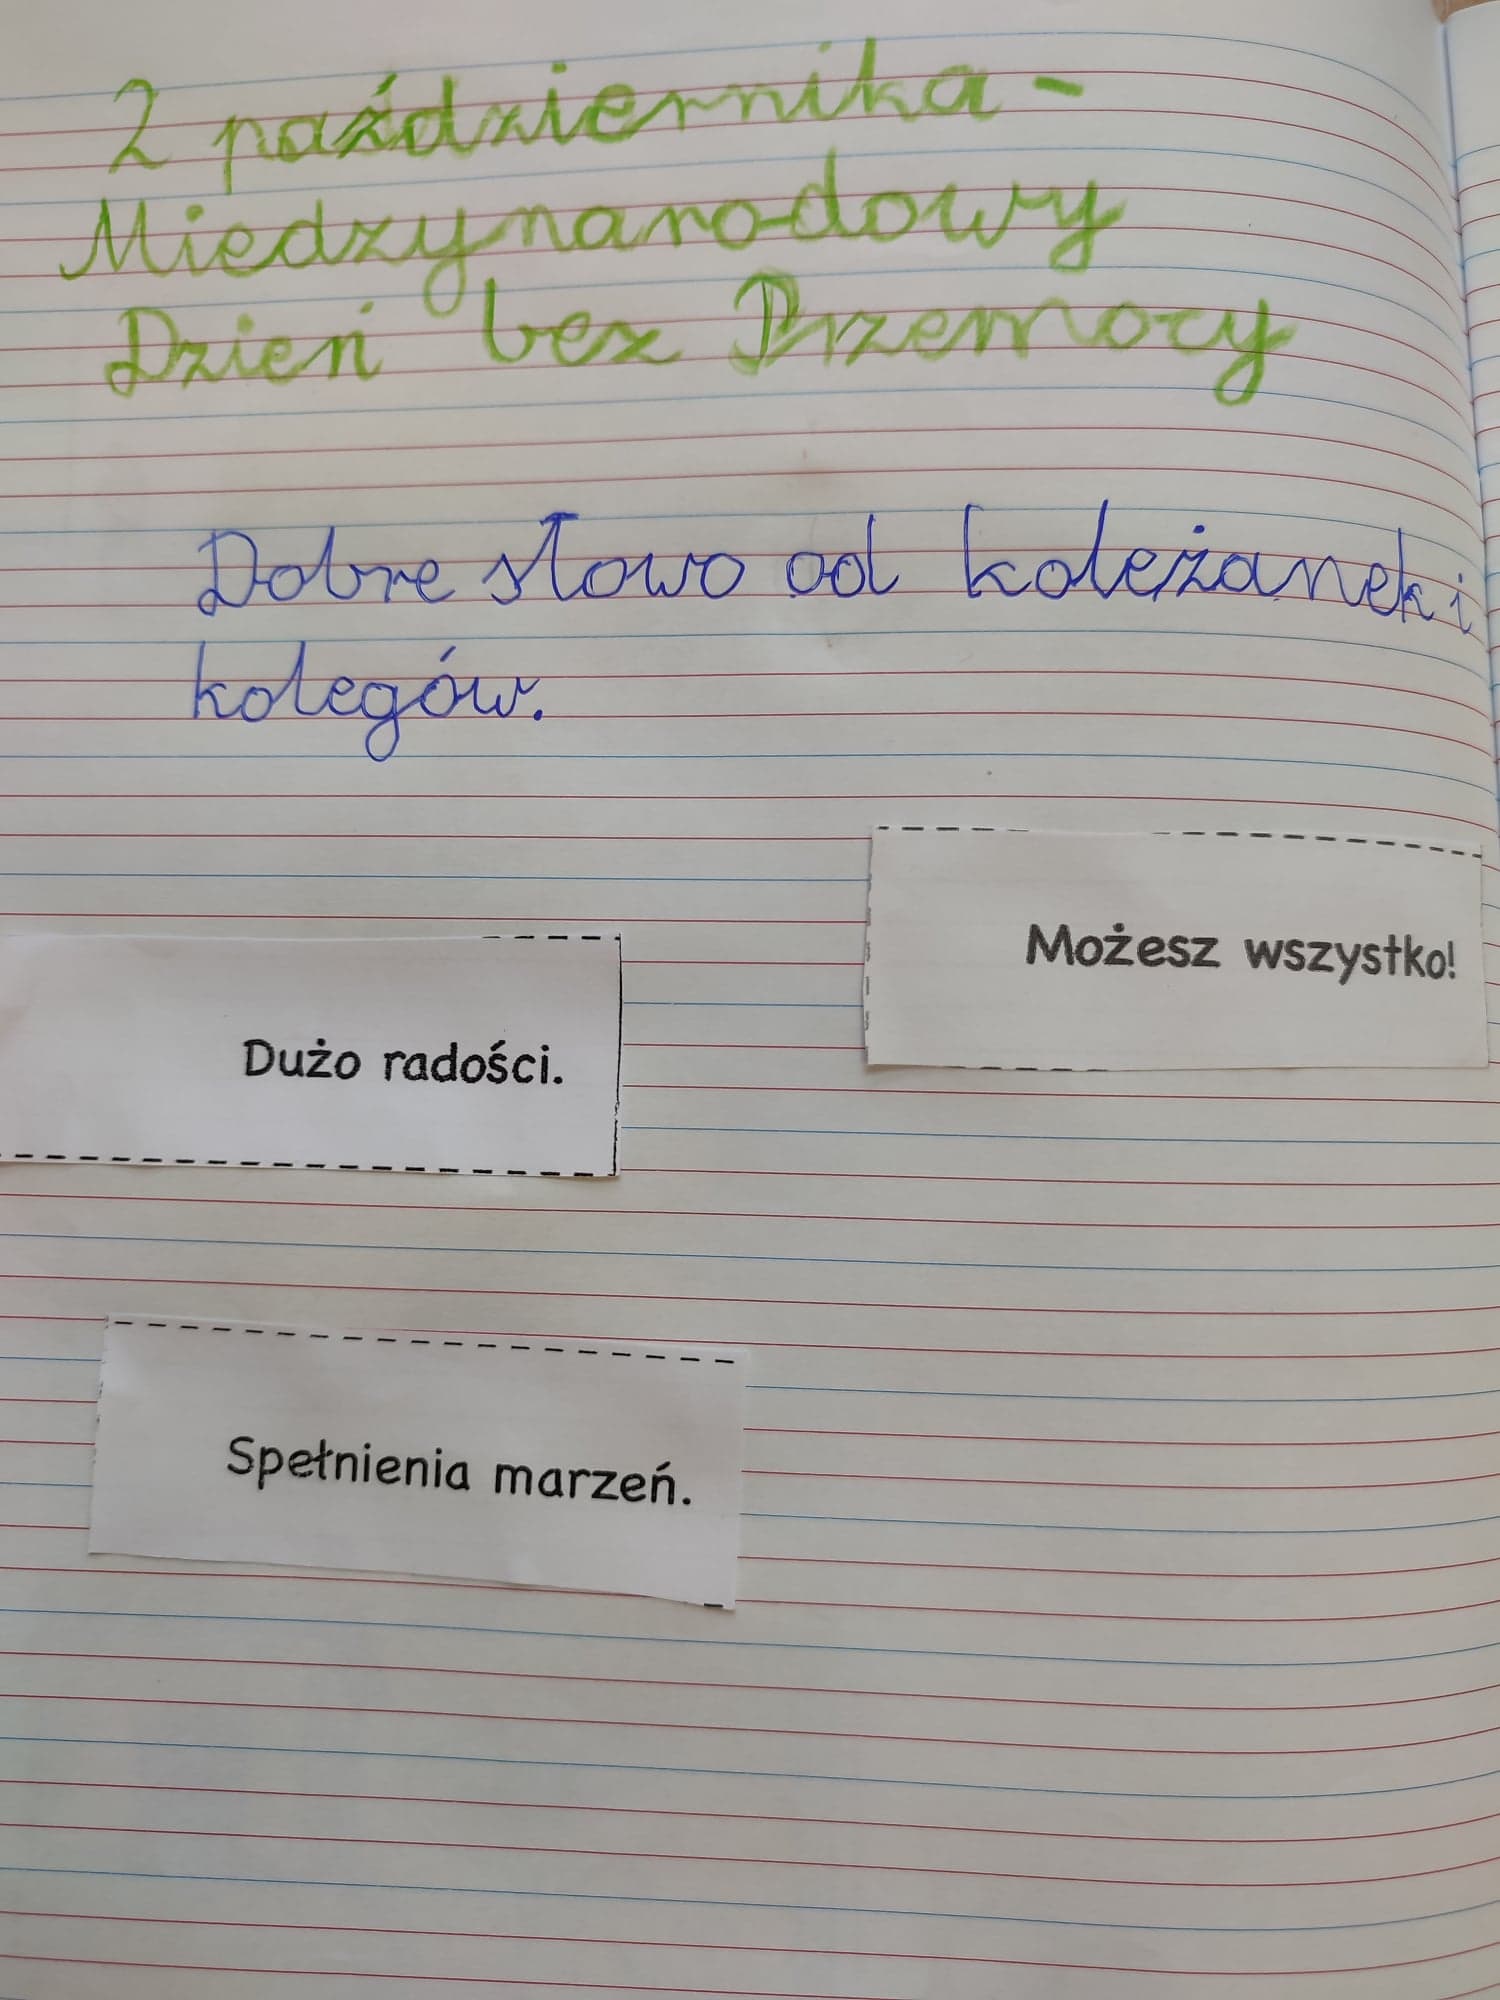 2 października -
Międzynarodowy
Dzień bez Przemocy
Dobre słowo od koleżanek i
kolegów.
Możesz wszystko!
Dużo radości.
Spełnienia marzeń.